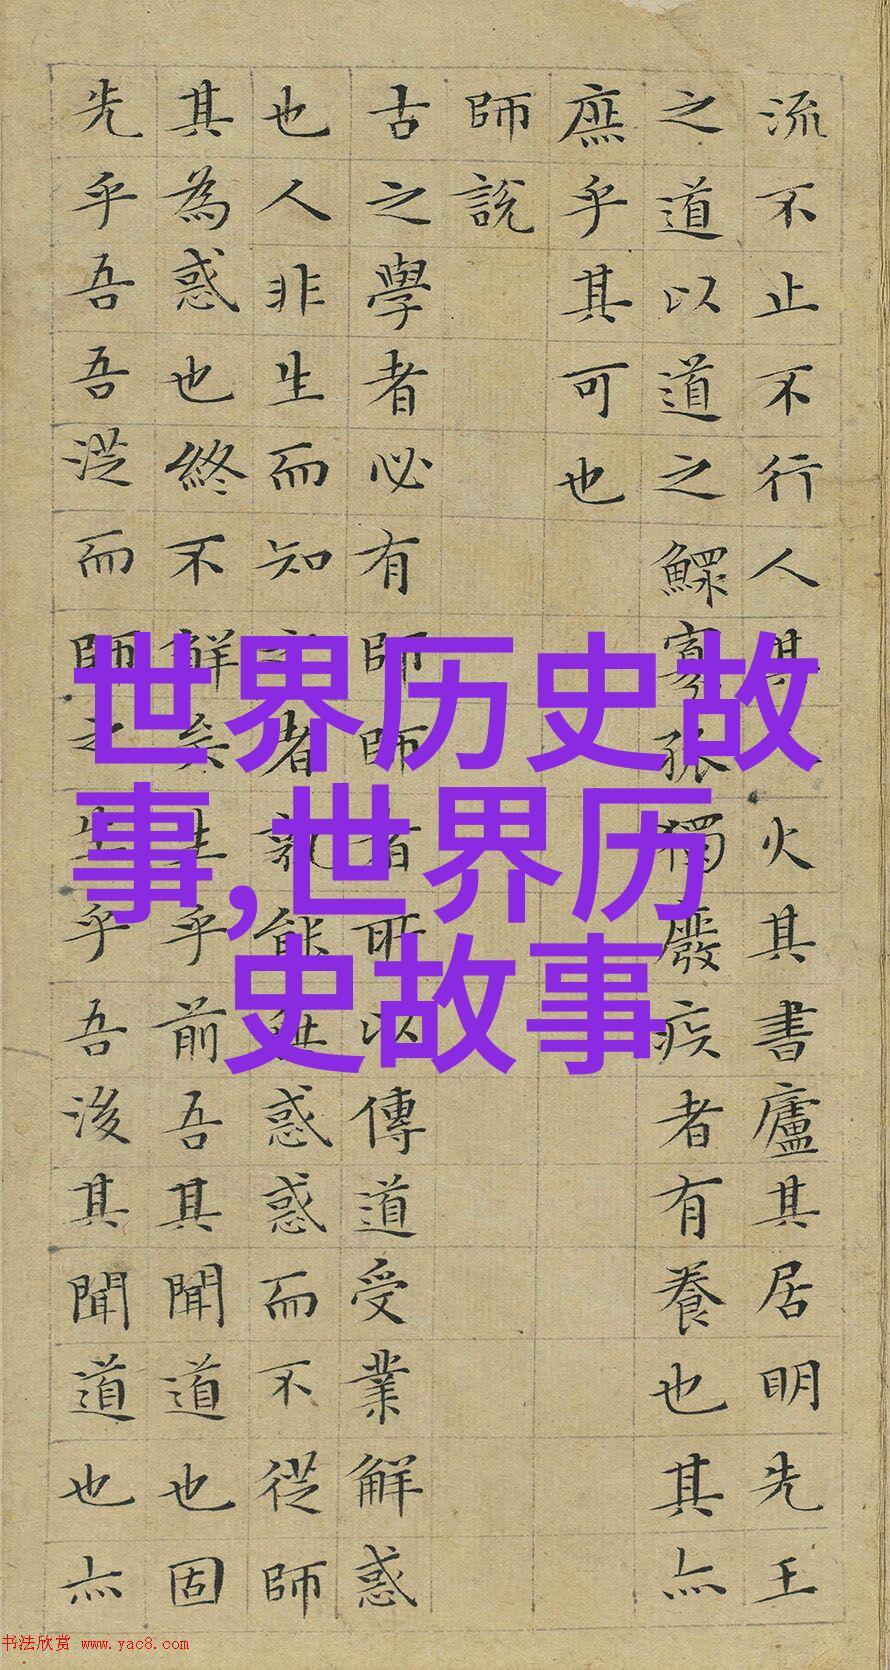 流不止不行人其火其書廬其居明先王
之道以道之鰥寡孤獨廢疾者有養也其亦
庶乎其可也
師說
古之學者必有師師者所以傳道受業解惑
也人非生而知之者孰能無惑惑而不從師
其為惑也終不解矣生乎前吾其聞道也固
先乎吾吾從而師之生乎吾後其聞道也亦
世界历史故
事,世界历
史故事
书法欣赏 www.yac8.com